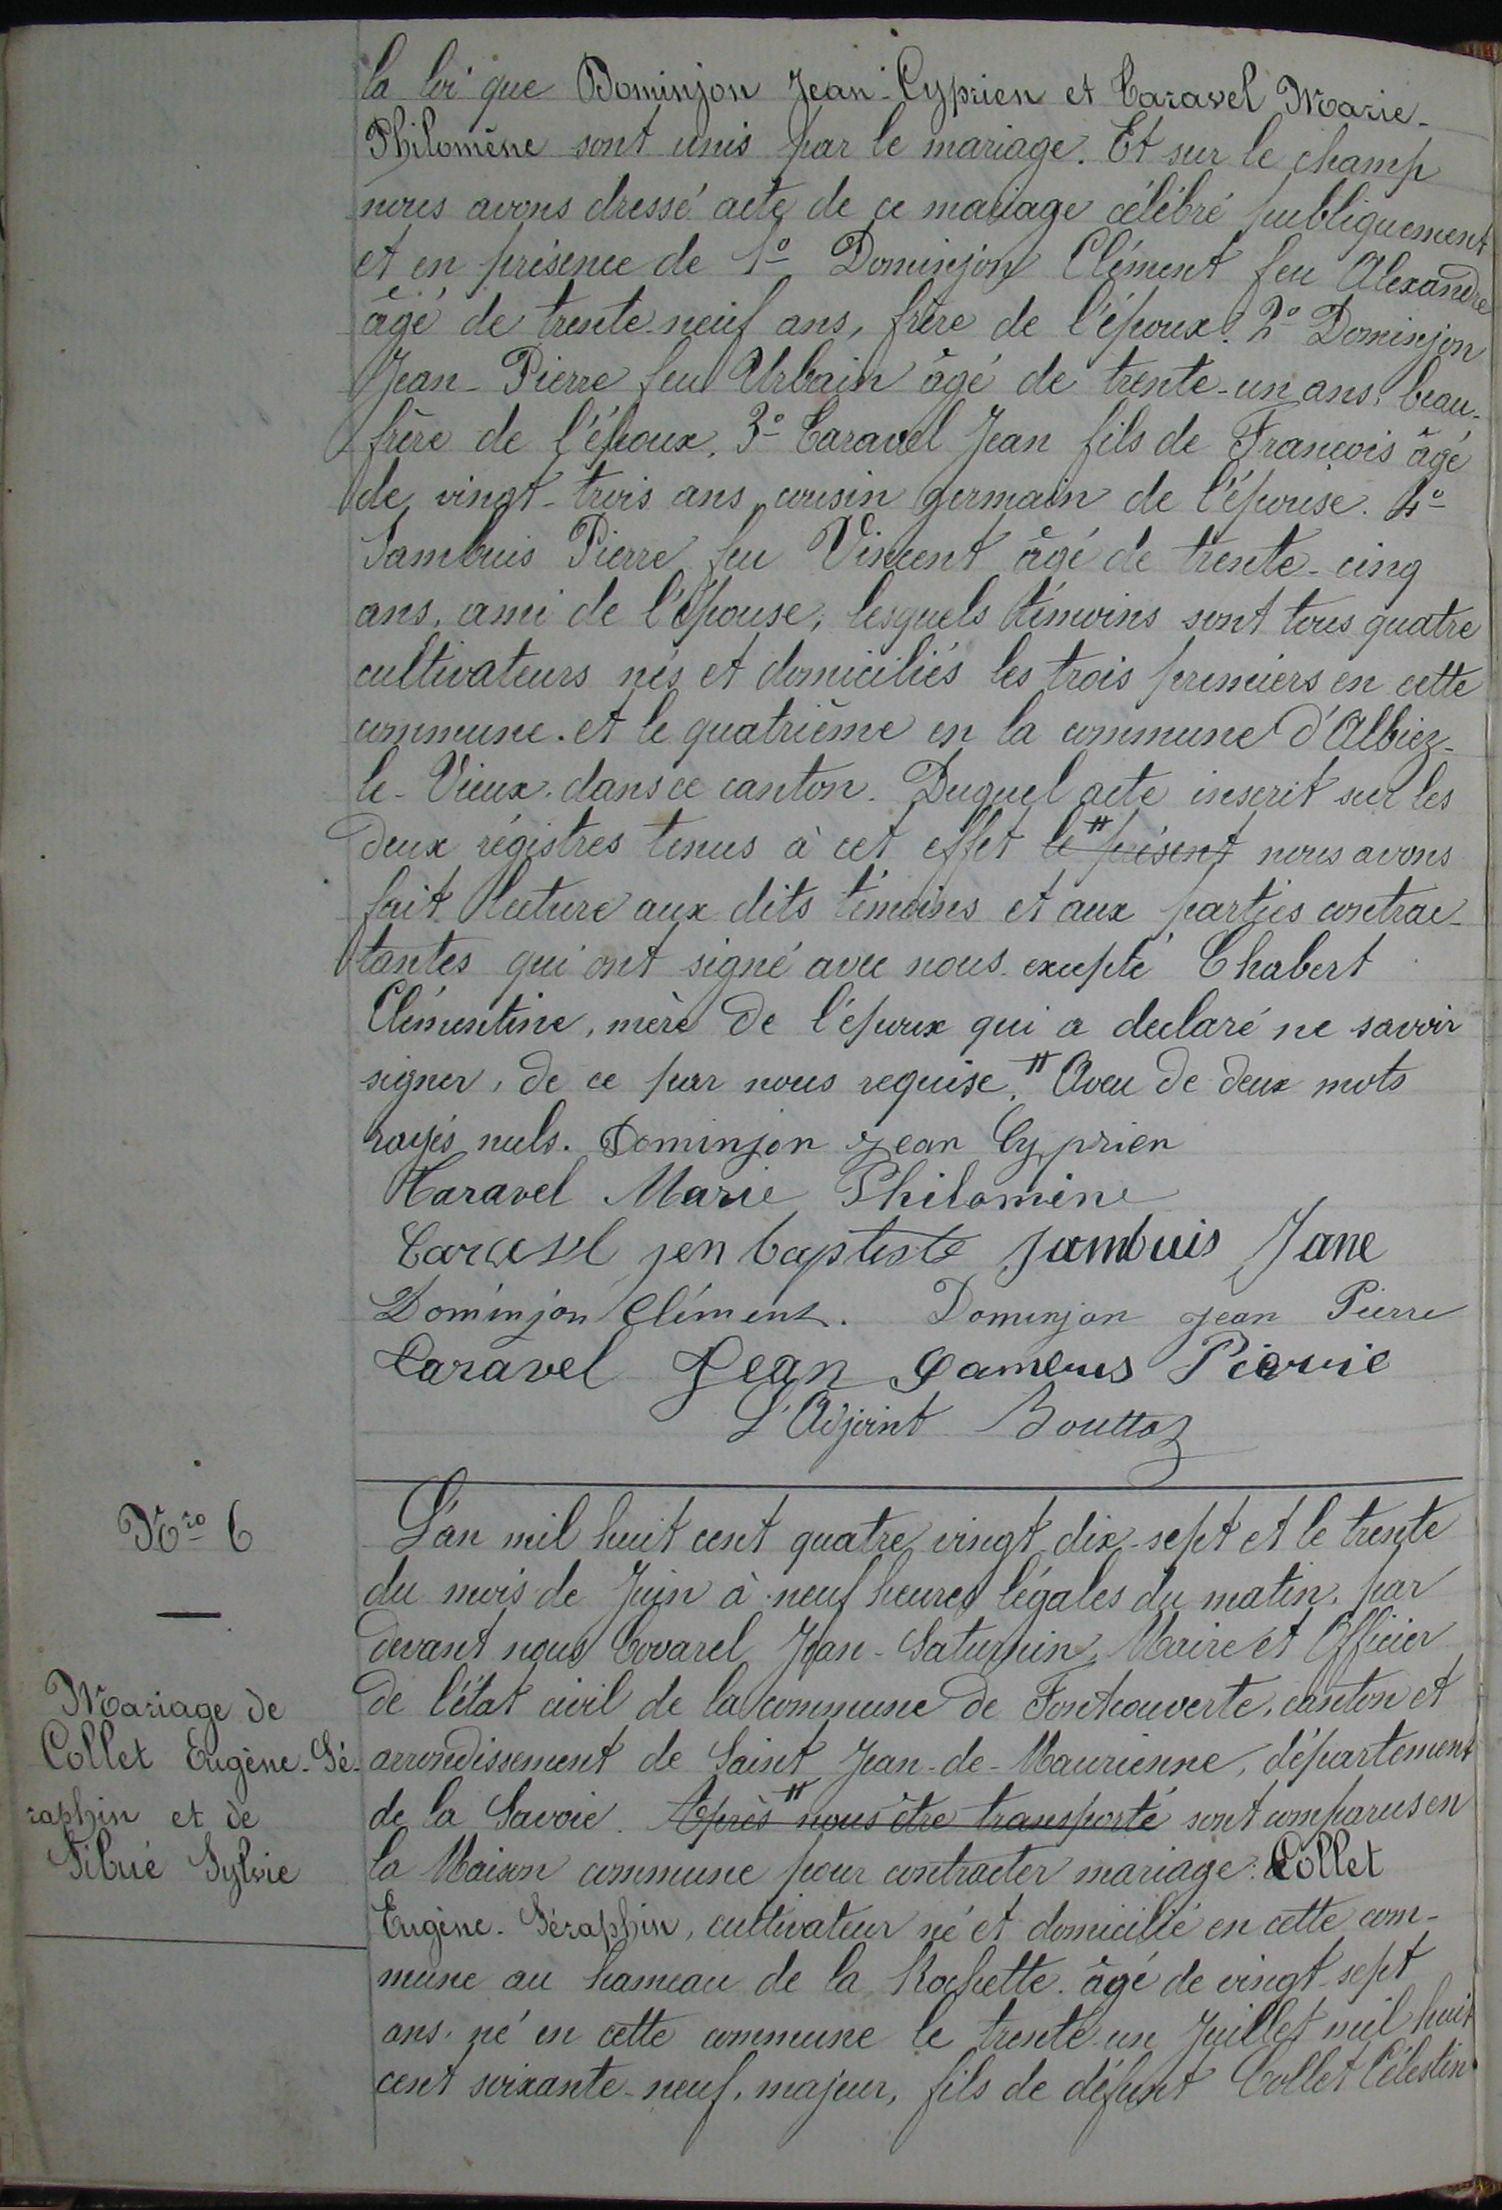 la loi que Dominjon Jean-Cyprien et Caravel Marie-
Philomène sont unis par le mariage. Et sur le champ
nous avons dressé acte de ce mariage célébré publiquement
et en présence de 1º Dominjon Clément feu Alexandre
âgé de trente-neuf ans, frère de l'époux. 2º Dominjon
Jean-Pierre feu Urbain âgé de trente-un ans, beau-
frère de l'époux. 3º Caravel Jean fils de François âgé
de vingt-trois ans cousin germain de l'épouse. 4º
Sambuis Pierre feu Vincent âgé de trente-cinq
ans, ami de l'épouse, lesquels témoins sont tous quatre
cultivateurs nés et domiciliés les trois premiers en cette
commune. et le quatrième en la commune d'Albiez-
le-Vieux. dans ce canton. Duquel acte inscrit sur les
deux régistres tenus à cet effet le # présent nous avons
fait lecture aux dits témoins et aux parties contrac-
tantes qui ont signé avec nous excepté Chabert
Clémentine, mère de l'époux qui a declaré ne savoir
signer, de ce par nous requise. # Aveu de deux mots
rayés nuls. Dominjon Jean Cyprien
Caravel Marie Philomine
Caravel jen baptiste Sambuis Jane
Dominjon Clément. Dominjon Jean Pierre
Caravel Jean Pierrie
L'Adjoint Bouttaz
Nro 6
Mariage de
Collet Eugène-Sé-
raphin et de
Sibué Sylvie
L'an mil huit cent quatre vingt dix-sept et le trente
du mois de Juin à neuf heures légales du matin, par
devant nous Covarel Jean-Saturnin, Maire et Officier
de l'état civil de la commune de Fontcouverte, canton et
arrondissement de Saint Jean-de-Maurienne, département
de la Savoie. Après # nous être transporté sont comparus en
la Maison commune pour contracter mariage: Collet
Eugène-Séraphin, cultivateur né et domicilié en cette com-
mune au hameau de la Rochette. âgé de vingt-sept
ans, né en cette commune le trente un Juillet mil huit
cent soixante-neuf, majeur, fils de défunt Collet Célestin